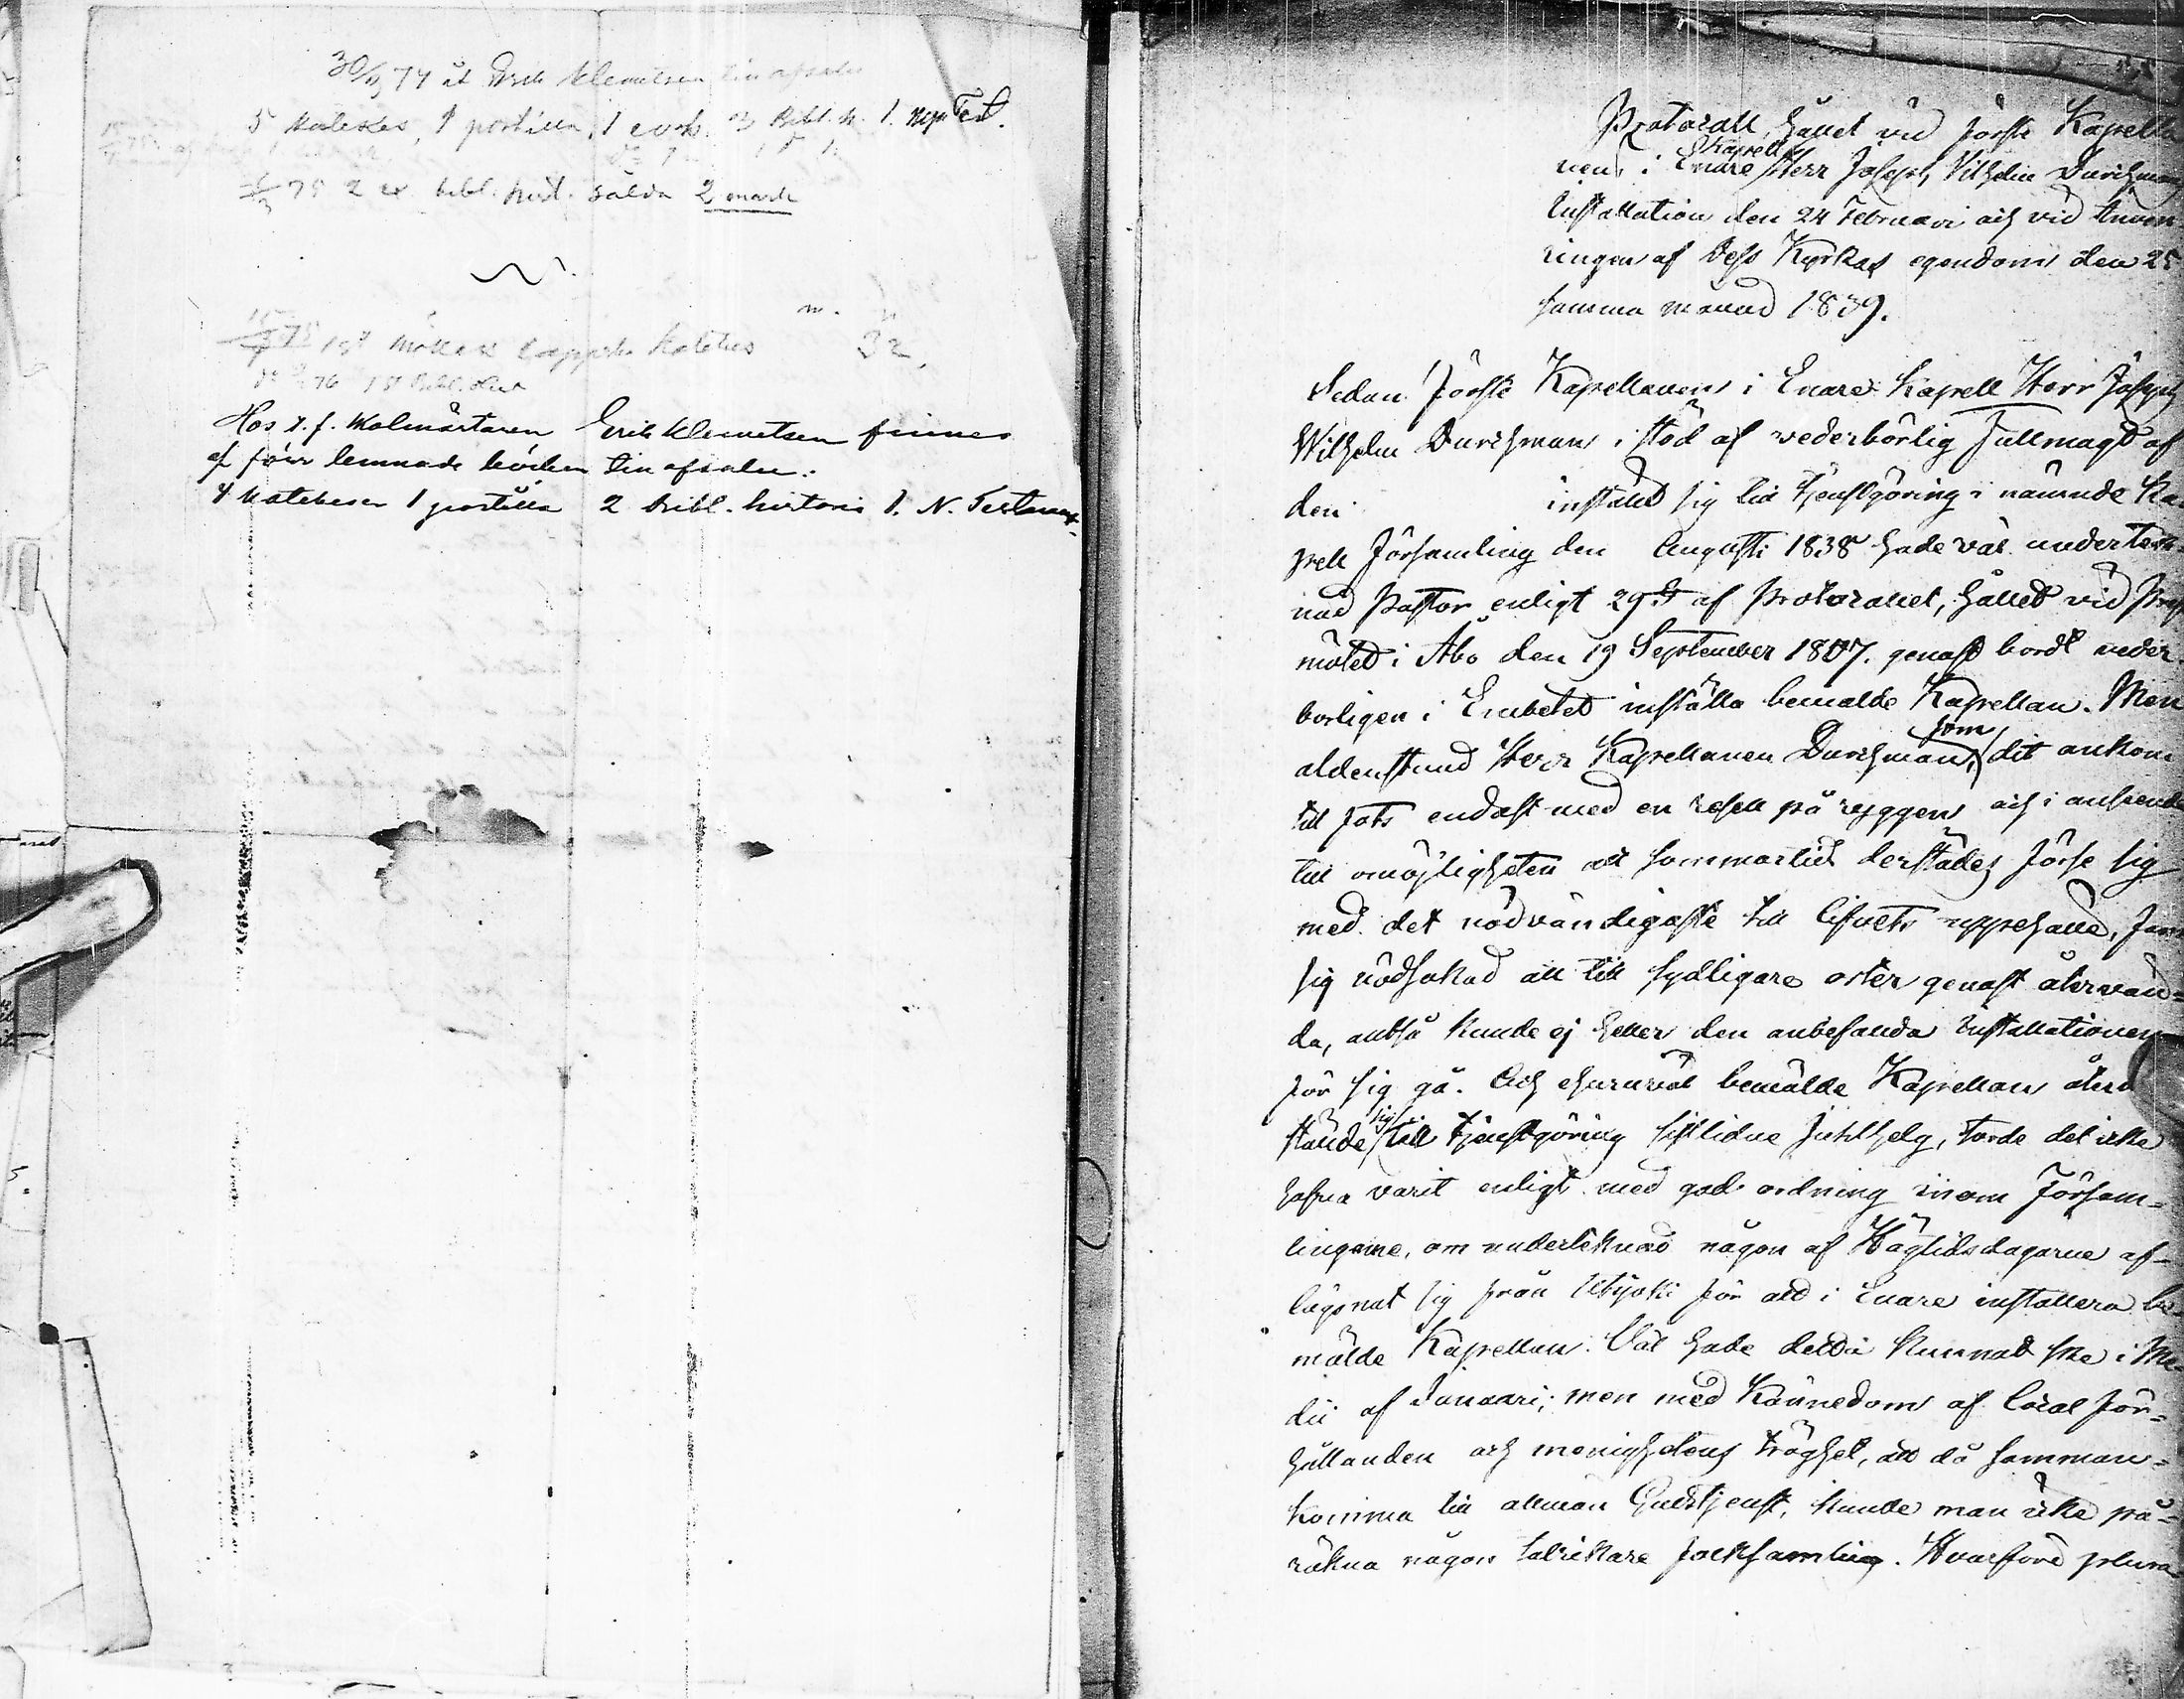 30/3 74 åt Erik Klemetsen till afsalu
5 Katekes, 1 postilla, 1 evah. 3 Bibl. h. 1. Nya Test.
75 2 ex. bibl. hist. sålda 2 mark
m.
75 15 Lappska Katekes 32
76 Bibl. hist
Hos t. f. Klemetsen finnes
af förr lemnade böcker till afsalu:
4 Katekeser 1 postilla 2 Bibl. historie 1. N. Testam.
Protocoll, hållet vid förste Kapella-
nens i Enare Kapell Herr Joseph Vilhelm Durchmans
Installation den 24 Februari och vid Inven-
ringen af dess Kyrkas egendom den 25
samma månad 1839.
Sedan förste Kapellanen i Enare Kapell Herr Joseph
Wilhelm Durchman i stöd af vederbörlig Fullmagt af
den instält sig till tjenstgöring i nämnde Ka-
pell Församling den Augusti 1838 hade väl underteck-
nad Pastor enligt 29 § af Protocollet, hållet vid Prest
mötet i Åbo den 19 September 1807. genast bordt veder-
börligen i Embetet inställa bemälde Kapellan. Men
aldenstund Herr Kapellanen Durchman, som dit ankom
till fots endast med en resell på ryggen och i anseende
till omöjligheten att sommartid derstädes förse sig
med det nödvändigaste till lifvets uppehälle, fann
sig nödsakad att till sydligare orter genast återvän-
da, altså kunde ej heller den anbefallda Installationen
för sig gå. Och ehuruväl bemälde Kapellan åter in-
stände sig till tjenstgöring sistlidne Julhelg, torde det icke
hafva varit enligt med god ordning inom Försam-
lingarne, om undertecknad någon af Högtidsdagarne af-
lägsnat sig från Utsjoki för att i Enare installera be-
mälde Kapellan. Väl hade detta kunnat ske i Me-
dii af Januari; men med Kännedom af local för-
hållanden och menighetens tröghet, att då samman-
komma till allmän Gudstjenst, kunde man icke på-
räkna någon talrikare folksamling. Hvarföre